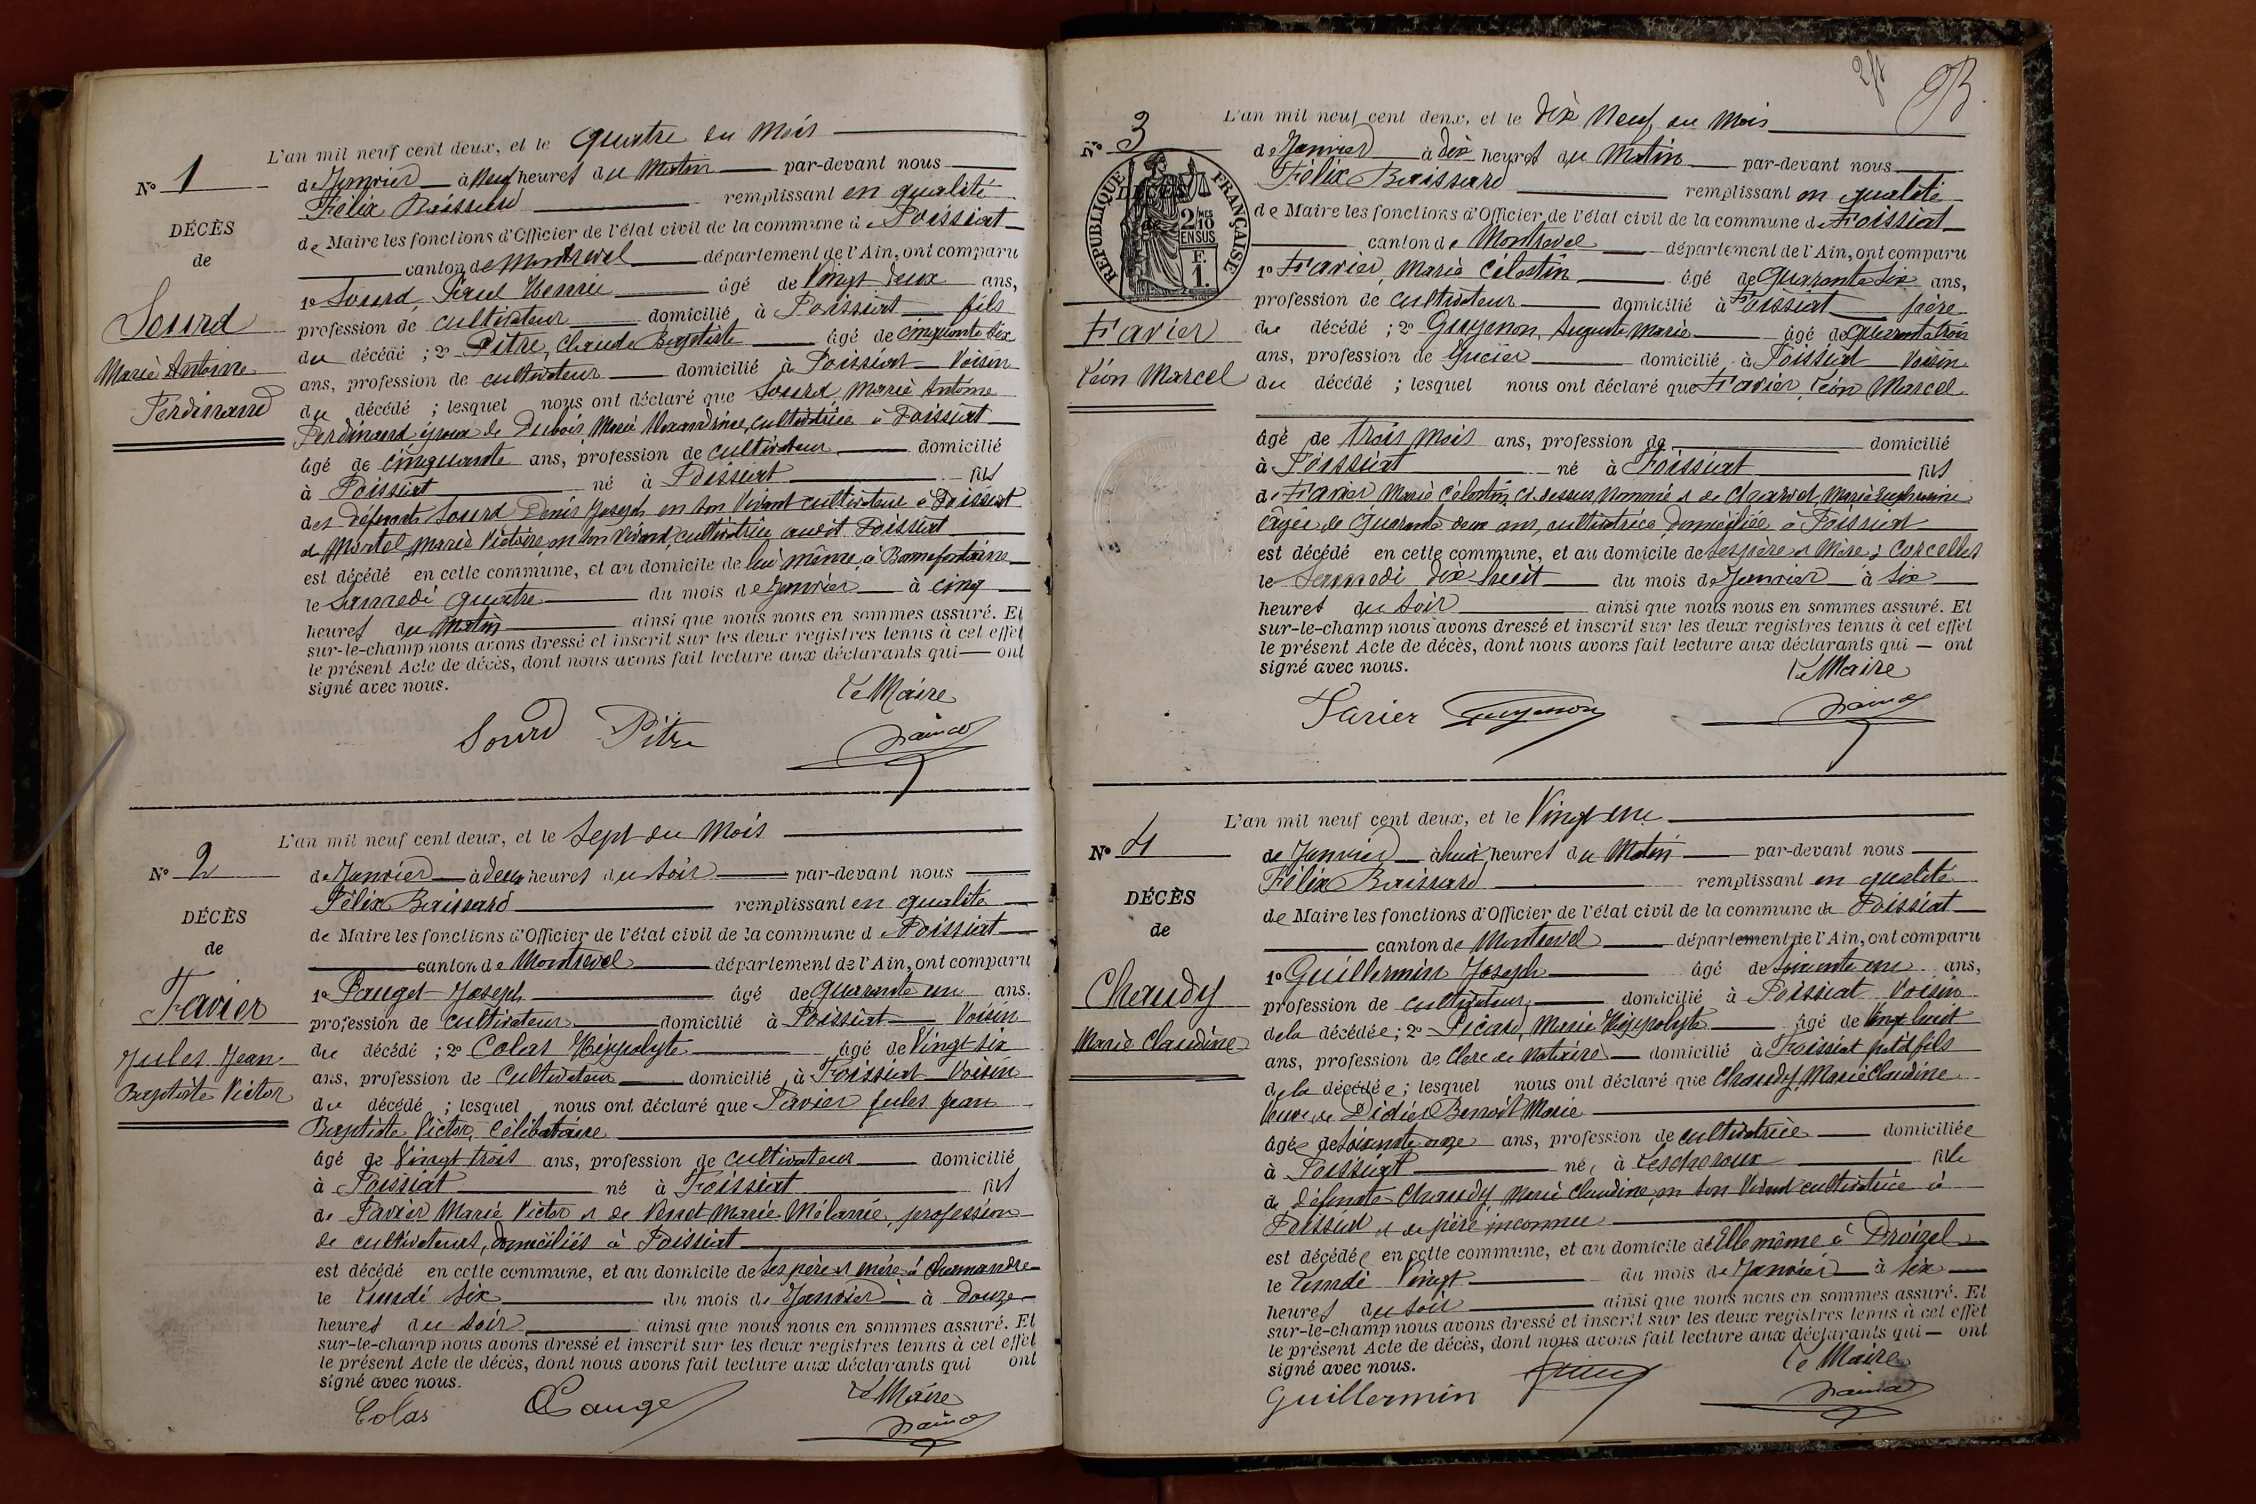 N° 1
DÉCÈS
de
Sourd
Marie Antoine
Ferdinand
L'an mil neuf cent deux, et le quatre du mois
de Janvier à neuf heures du Matin par-devant nous
Félix Baissard remplissant en qualité
de Maire les fonctions d'Officier de l'état civil de la commune de Foissiat
canton de Montrevel département de l'Ain, ont comparu
1° Sourd, Paul Henri âgé de Vingt deux ans,
profession de cultivateur domicilié à Foissiat fils
du décédé ; 2° Pitre, Claude Baptiste âgé de cinquante six
ans, profession de cultivateur domicilié à Foissiat Voisin
du décédé ; lesquel nous ont déclaré que Sourd, Marie Antoine
Ferdinand époux de Dubois Marie Alexandrine, cultivatrice à Foissiat
âgé de cinquante ans, profession de cultivateur domicilié
à Foissiat né à Foissiat fils
des défunts Sourd Denis Joseph en son Vivant cultivateur à Foissiat
et Martel Marie Victoire, en son Vivant, cultivatrice audit Foissiat
est décédé en cette commune, et au domicile de lui même, à Bonnefontaine
le Samedi quatre du mois de Janvier à cinq
heures du Matin ainsi que nous nous en sommes assuré. Et
sur-le-champ nous avons dressé et inscrit sur les deux registres tenus à cet effet
le présent Acte de décès, dont nous avons fait lecture aux déclarants qui — ont
signé avec nous.
Le Maire
Sourd Pitre
N° 2
DÉCÈS
de
Favier
Jules Jean
Baptiste Victor
L'an mil neuf cent deux, et le Sept du Mois
de Janvier à deux heures du soir par-devant nous
Félix Baissard remplissant en qualité
de Maire les fonctions d'Officier de l'état civil de la commune de Foissiat
canton de Montrevel département de l'Ain, ont comparu
1° Pauget Joseph âgé de quarante un ans.
profession de cultivateur domicilié à Foissiat Voisin
du décédé ; 2° Colas Hippolyte âgé de Vingt six
ans, profession de Cultivateur domicilié à Foissiat Voisin
du décédé ; lesquel nous ont déclaré que Favier Jules Jean
Baptiste Victor, Célibataire
âgé de Vingt trois ans, profession de cultivateur domicilié
à Foissiat né à Foissiat fils
de Favier Marie Victor et de Venet Marie Mélanie, profession
de cultivateurs, domiciliés à Foissiat
est décédé en cette commune, et au domicile de ses père et mère à Chamandre
le Lundi six du mois de Janvier à Douze
heures du soir ainsi que nous nous en sommes assuré. Et
sur-le-champ nous avons dressé et inscrit sur les deux registres tenus à cet effet
le présent Acte de décès, dont nous avons fait lecture aux déclarants qui ont
signé avec nous.
Le Maire
Colas Pauget
N° 3
RÉPUBLIQUE FRANÇAISE
2/10 EN SUS
F. 1.
Favier
Léon Marcel
L'an mil neuf cent deux, et le dix Neuf du Mois
de Janvier à dix heures du Matin par-devant nous
Félix Baissard remplissant en qualité
de Maire les fonctions d'Officier de l'état civil de la commune de Foissiat
canton de Montrevel département de l'Ain, ont comparu
1° Favier, Marie Célestin âgé de Quarante Six ans,
profession de cultivateur domicilié à Foissiat père
du décédé ; 2° Guyenon, Auguste Marie âgé de quarante trois
ans, profession de domicilié à Foissiat Voisin
du décédé ; lesquel nous ont déclaré que Favier, Léon Marcel
âgé de trois mois ans, profession de domicilié
à Foissiat né à Foissiat fils
de Favier Marie Célestin ci dessus Nommé et de Charvet, Marie Euphrasine
âgée de Quarante deux ans, cultivatrice, domiciliée à Foissiat
est décédé en cette commune, et au domicile de ses père et Mère à Corcelles
le Samedi dix huit du mois de Janvier à Six
heures du soir ainsi que nous nous en sommes assuré. Et
sur-le-champ nous avons dressé et inscrit sur les deux registres tenus à cet effet
le présent Acte de décès, dont nous avons fait lecture aux déclarants qui — ont
signé avec nous.
Le Maire
Favier Guyenon
N° 4
DÉCÈS
de
Chaudy
Marie Claudine
L'an mil neuf cent deux, et le Vingt un
de Janvier à huit heures du Matin par-devant nous
Félix Baissard remplissant en qualité
de Maire les fonctions d'Officier de l'état civil de la commune de Foissiat
canton de Montrevel département de l'Ain, ont comparu
1° Guillermin Joseph âgé de soixante un ans,
profession de cultivateur domicilié à Foissiat Voisin
de la décédée ; 2° Picard, Marie Hippolyte âgé de Vingt huit
ans, profession de Clerc de Notaire domicilié à Foissiat petit fils
de la décédée ; lesquel nous ont déclaré que Chaudy, Marie Claudine
Veuve de Didier Benoît Marie
âgée de soixante onze ans, profession de cultivatrice domiciliée
à Foissiat née à Lescheroux fille
de défunte Chaudy, Marie Claudine, en son Vivant cultivatrice à
Foissiat et de père inconnu
est décédée en cette commune, et au domicile d'Elle même à Droizel
le Lundi Vingt du mois de Janvier à six
heures du soir ainsi que nous nous en sommes assuré. Et
sur-le-champ nous avons dressé et inscrit sur les deux registres tenus à cet effet
le présent Acte de décès, dont nous avons fait lecture aux déclarants qui — ont
signé avec nous.
Le Maire
Guillermin